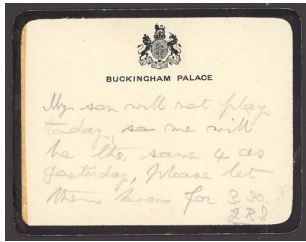 BUCKINGHAM PALACE
My son will not play
today, so we will
be the same 4 as
yesterday, please let
them know for